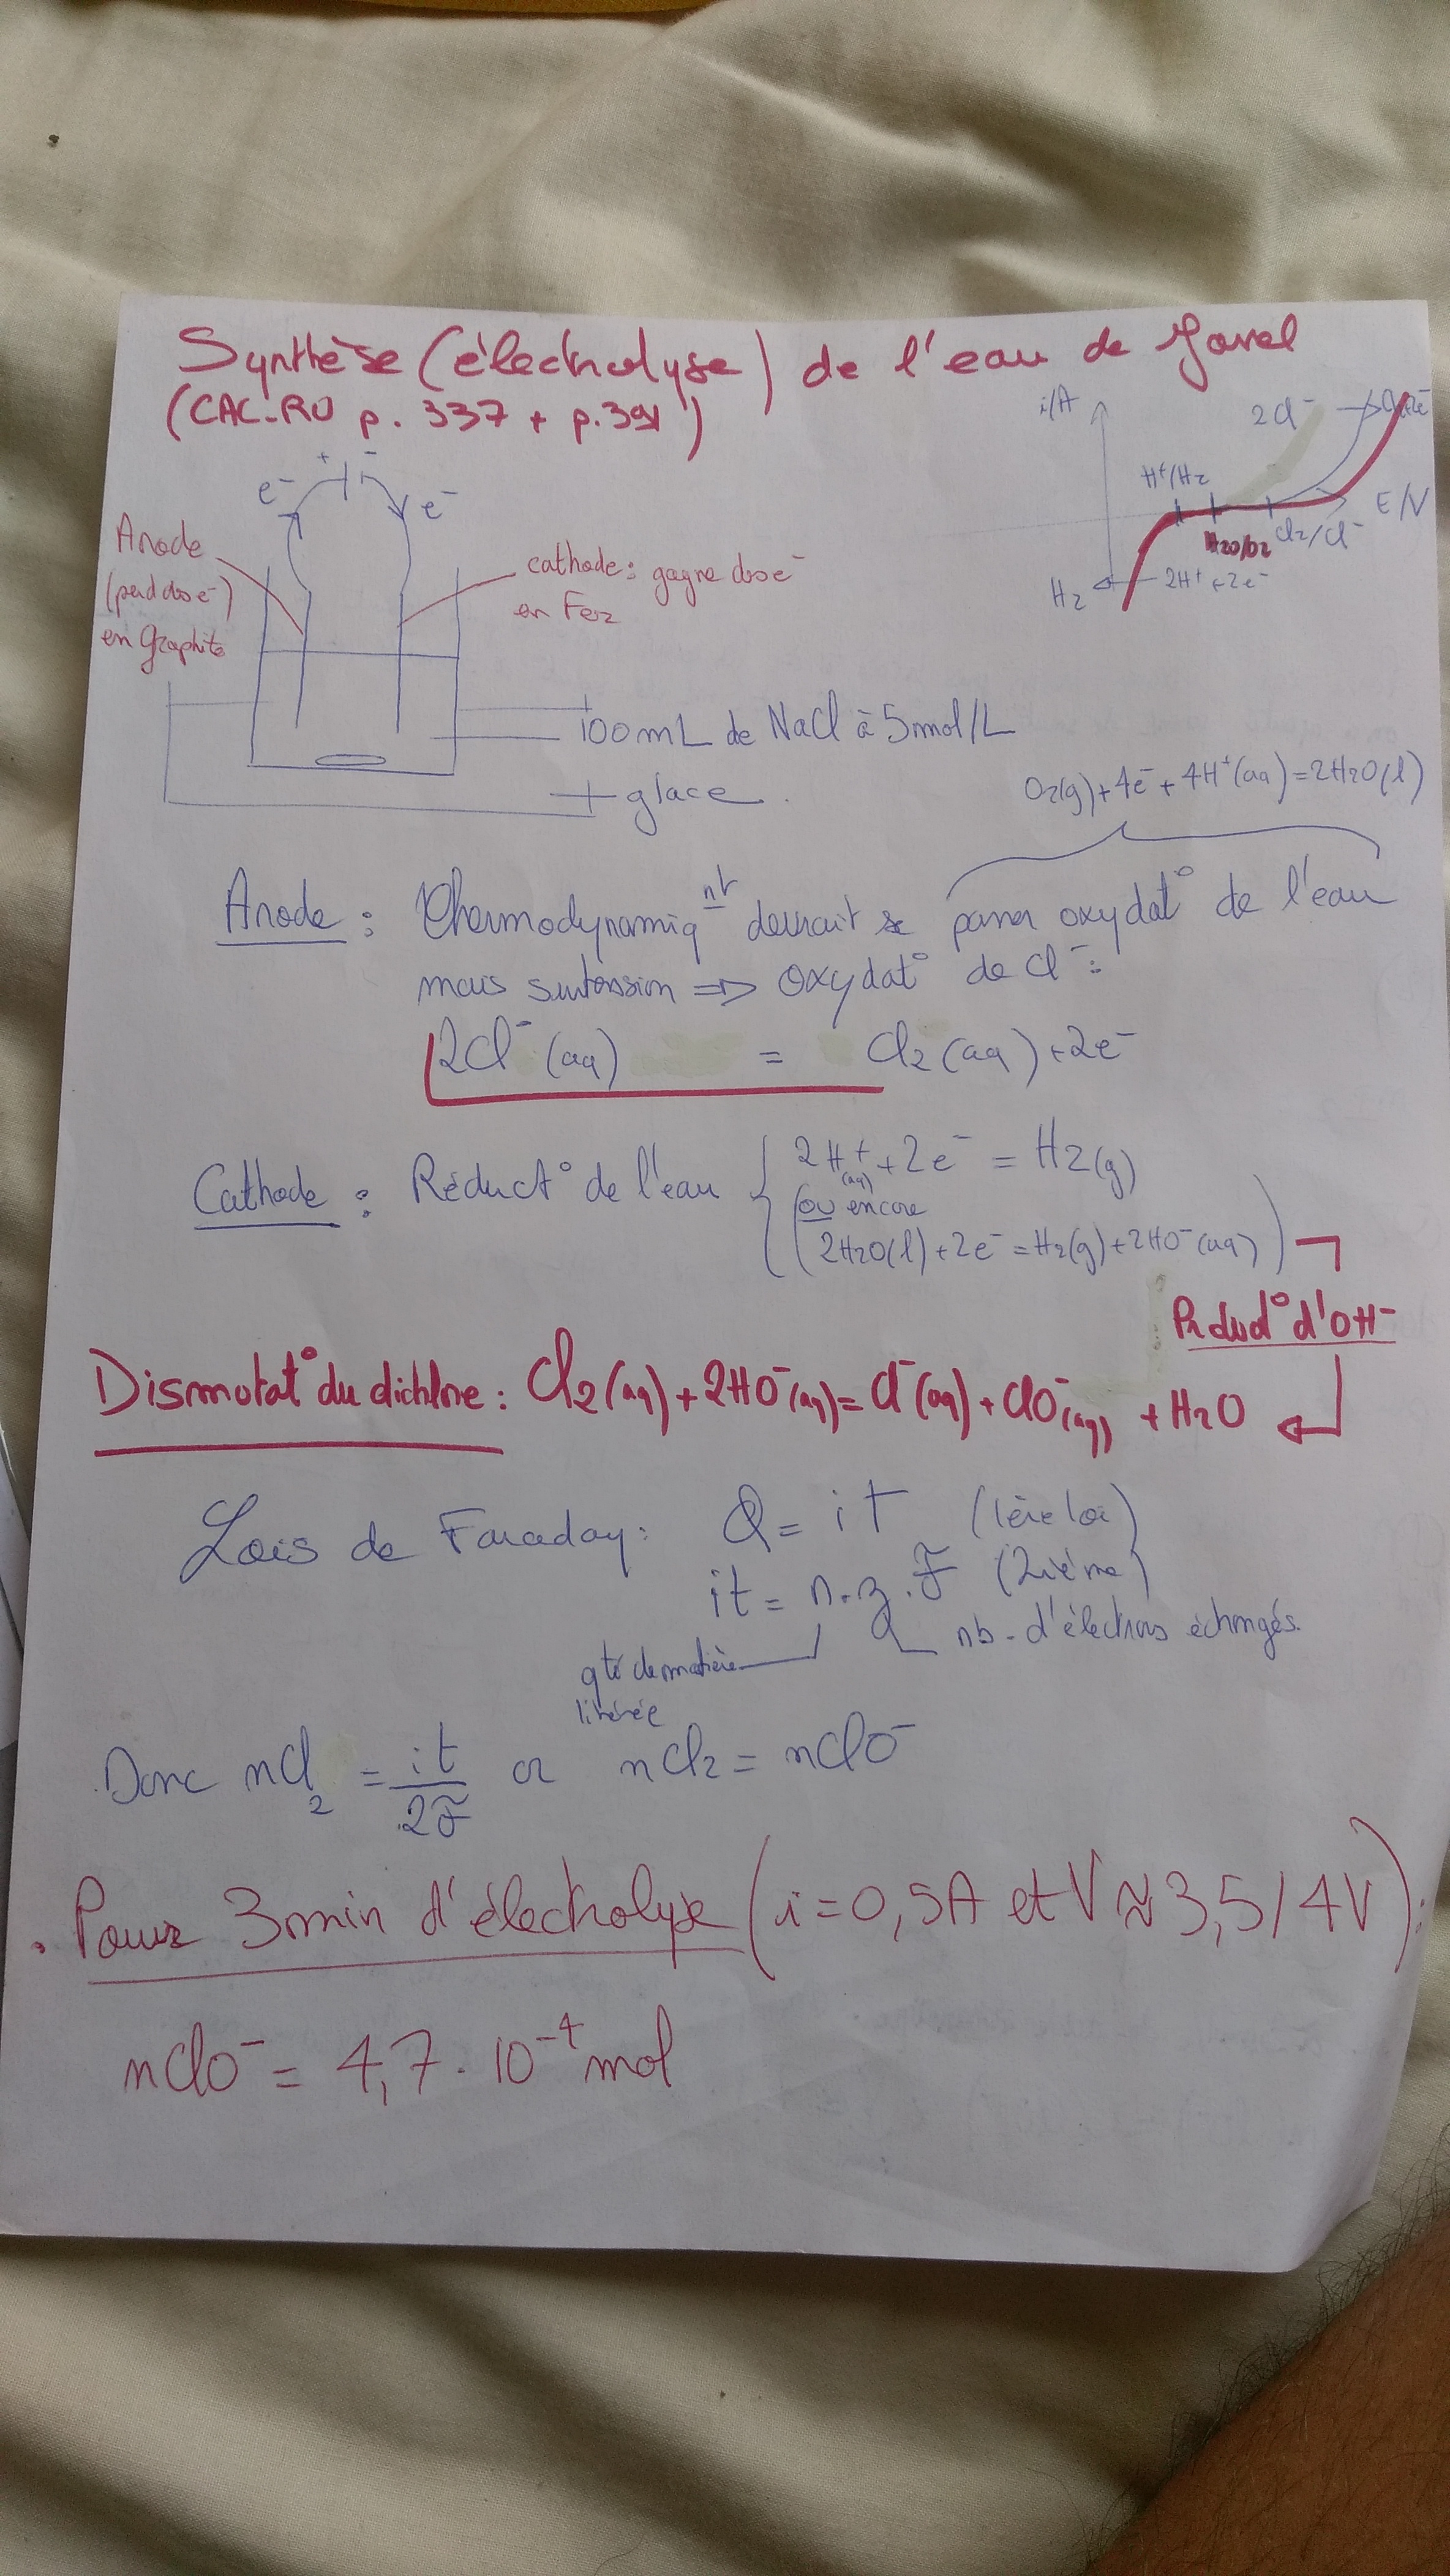 Synthèse (électrolyse) de l'eau de Javel
(CAC-RO p. 337 + p.391)
i/A
2Cl⁻ → Cl2+2e⁻
H⁺/H2
E/V
H2O/O2
Cl2/Cl⁻
H2 ← 2H⁺+2e⁻
+ -
e⁻
e⁻
Anode
(perd des e⁻)
en Graphite
cathode: gagne des e⁻
en Fer
100mL de NaCl à 5mol/L
+ glace.
O2(g)+4e⁻+4H⁺(aq)=2H2O(l)
Anode : Thermodynamiqnt devrait se passer oxydat° de l'eau
mais surtension => Oxydat° de Cl⁻:
2Cl⁻(aq) = Cl2(aq)+2e⁻
Cathode : Réduct° de l'eau
2H⁺(aq)+2e⁻ = H2(g)
ou encore
2H2O(l)+2e⁻=H2(g)+2HO⁻(aq)
Product° d'OH⁻
Dismutat° du dichlore: Cl2(aq)+2HO⁻(aq)=Cl⁻(aq)+ClO⁻(aq) + H2O
Lois de Faraday: Q = it (1ère loi)
it = n.z.F (2ième)
nb. d'électrons échangés.
qté de matière
libérée
Donc nCl2 = it/2F or nCl2 = nClO⁻
. Pour 3min d'électrolyse (i=0,5A et V≈3,5/4V):
nClO⁻ = 4,7.10⁻⁴ mol